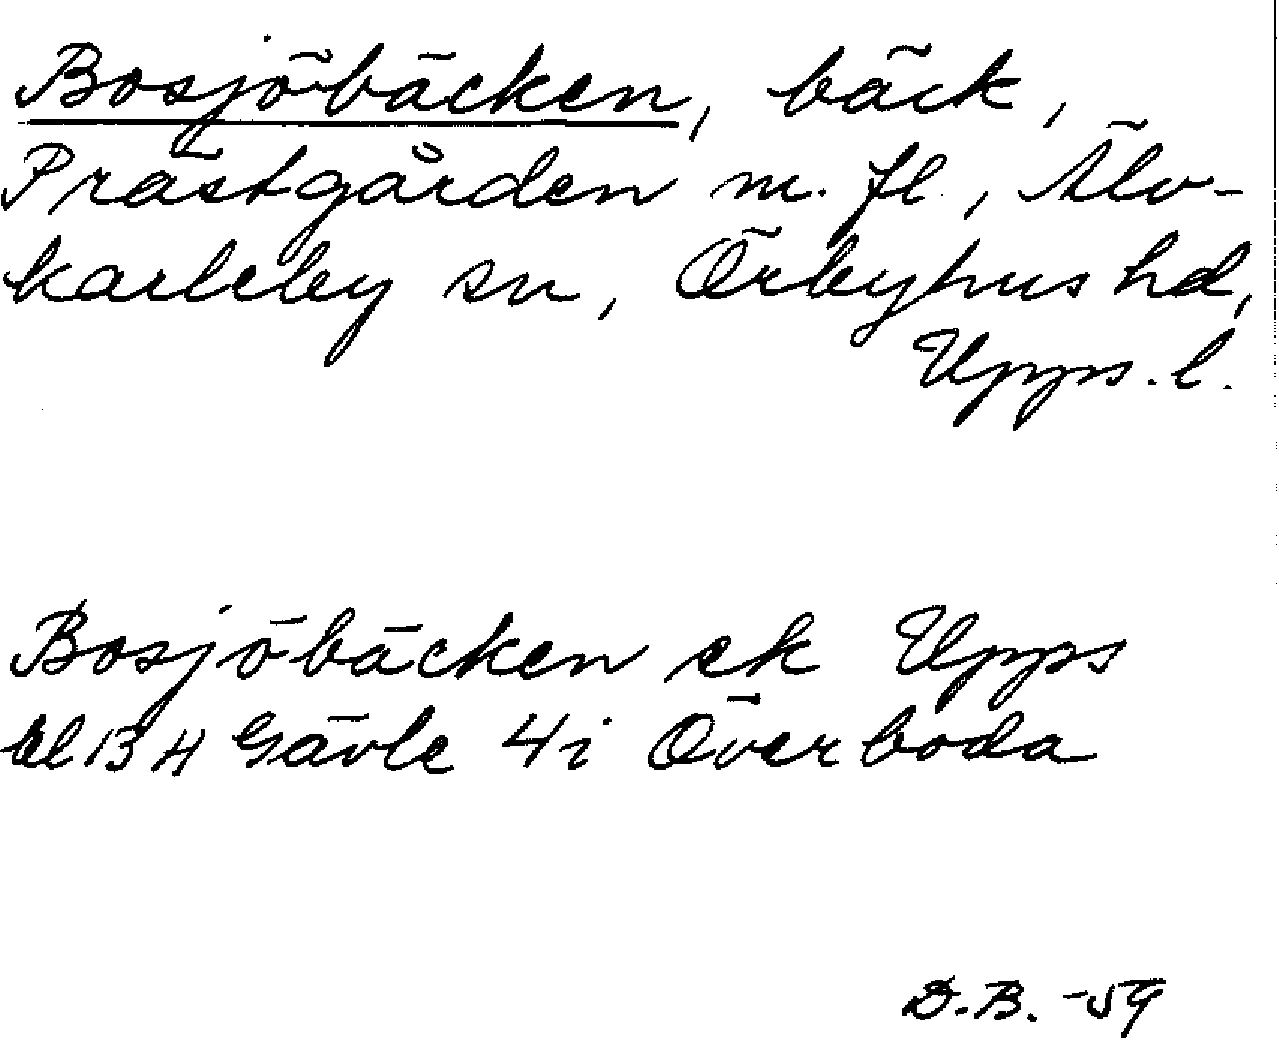 Bosjöbäcken, bäck,
Prästgården m. fl., Älv-
karleby sn, Örbyhus hd,
Upps. l.
Bosjöbäcken ek Upps
bl 13 H Gävle 4i Överboda
D.B. -59